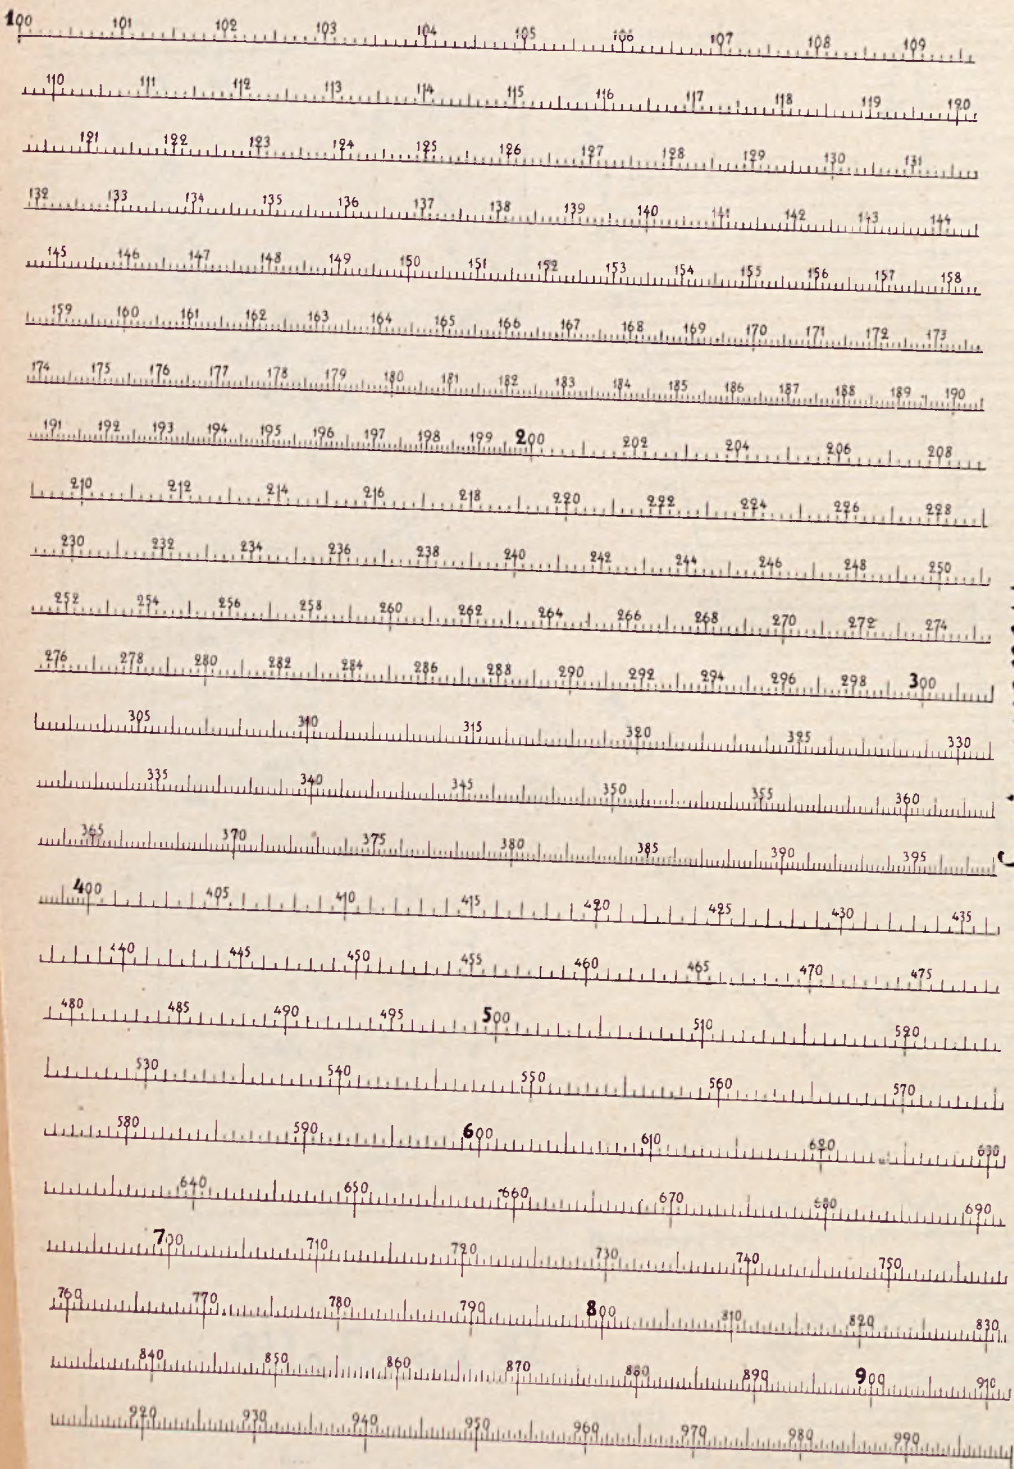 100 101 102 103 104 105 106 107 108 109
110 111 112 113 114 115 116 117 118 119 120
121 122 123 124 125 126 127 128 129 130 131
132 133 134 135 136 137 138 139 140 141 142 143 144
145 146 147 148 149 150 151 152 153 154 155 156 157 158
159 160 161 162 163 164 165 166 167 168 169 170 171 172 173
174 175 176 177 178 179 180 181 182 183 184 185 186 187 188 189 190
191 192 193 194 195 196 197 198 199 200 202 204 206 208
210 212 214 216 218 220 222 224 226 228
230 232 234 236 238 240 242 244 246 248 250
252 254 256 258 260 262 264 266 268 270 272 274
276 278 280 282 284 286 288 290 292 294 296 298 300
305 310 315 320 325 330
335 340 345 350 355 360
365 370 375 380 385 390 395
400 405 410 415 420 425 430 435
440 445 450 455 460 465 470 475
480 485 490 495 500 510 520
530 540 550 560 570
580 590 600 610 620 630
640 650 660 670 680 690
700 710 720 730 740 750
760 770 780 790 800 810 820 830
840 850 860 870 880 890 900 910
920 930 940 950 960 970 980 990